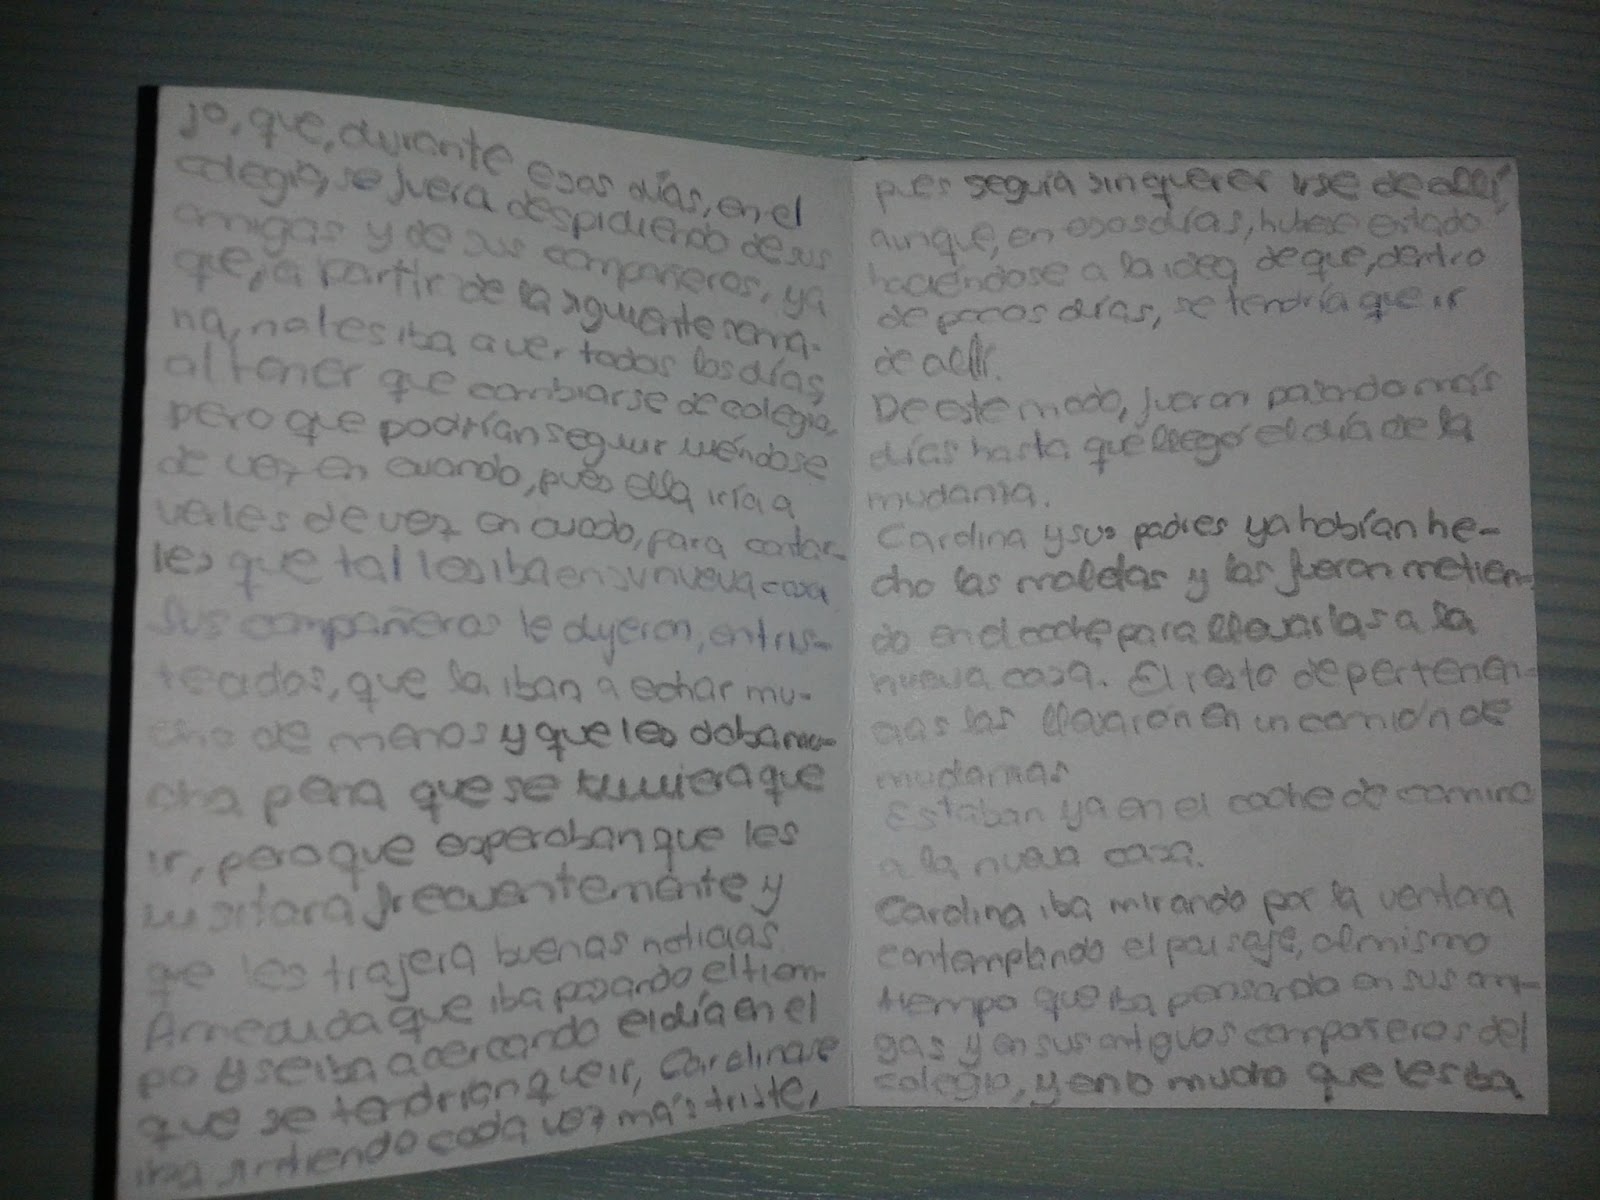 jo, que, durante esos días, en el
colegio, se fuera despidiendo de sus
amigas y de sus compañeros, ya
que, a partir de la siguiente sema-
na, no les iba a ver todos los días,
al tener que cambiarse de colegio,
pero que podrían seguir viéndose
de vez en cuando, pues ella iría a
verles de vez en cuado, para contar-
les que tal les iba en su nueva casa
Sus compañeros le dijeron, entris-
tecidos, que la iban a echar mu-
cho de menos y que les daba mu-
cha pena que se tuviera que
ir, pero que esperaban que les
visitara frecuentemente y
que les trajera buenas noticias
A medida que iba pasando el tiem-
po y se iba acercando el día en el
que se tendrían que ir, Carolina se
iba sintiendo cada vez más triste,
pues seguía sin querer irse de allí,
aunque, en esos días, hubiese estado
haciéndose a la idea de que, dentro
de pocos días, se tendría que ir
de allí.
De este modo, fueron pasando más
días hasta que llegó el día de la
mudanza.
Carolina y sus padres ya habían he-
cho las maletas y las fueron metien-
do en el coche para llevarlas a la
nueva casa. El resto de pertenen-
cias las llevaron en un camión de
mudanzas
Estaban ya en el coche de camino
a la nueva casa.
Carolina iba mirando por la ventana
contemplando el paisaje, al mismo
tiempo que iba pensando en sus ami-
gas y en sus antiguos compañeros del
colegio, y en lo mucho que les iba